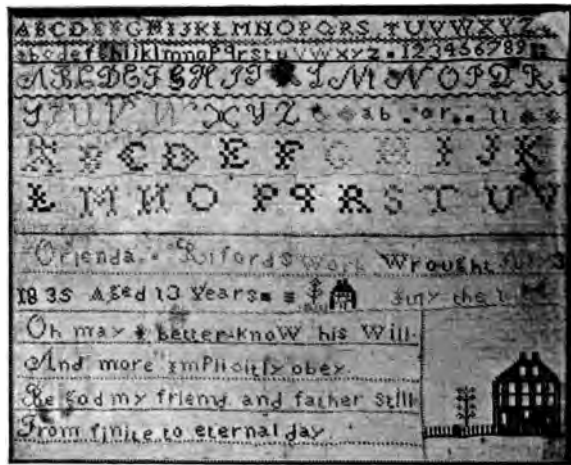 ABCDEFGHIJKLMNOPQRS TUVWXYZ
abcdefghijklmnopqrstuvwxyz 123456789
ABCDEFGHIJ LMNOPQR
TUV W XYZ ab or ll
A B C D E F G H I J K
L M N O P Q R S T U V
Orienda Rifords Work Wrought July
1835 Aged 13 Years the
Oh may I better know his Will
And more implicitly obey
Be God my friend and father Still
From finite to eternal day